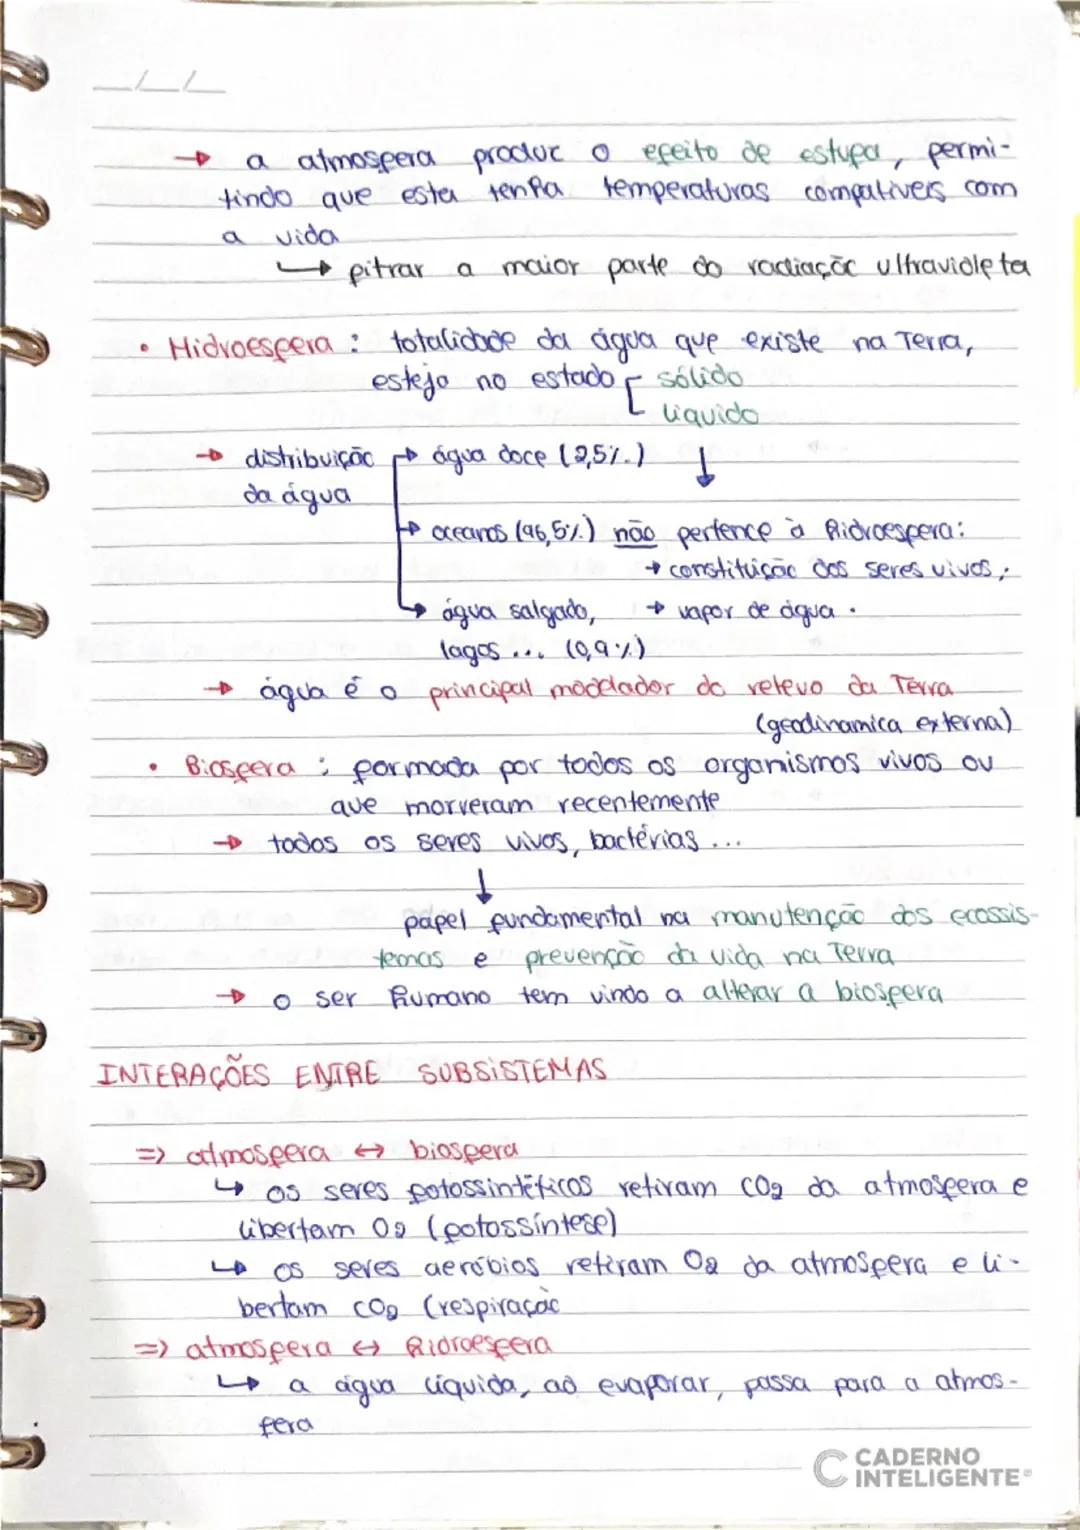 _/_/_
→ a atmosfera produz o efeito de estufa, permi-
tindo que esta tenha temperaturas compatíveis com
a vida
↳ fitrar a maior parte da radiação ultravioleta
• Hidroesfera : totalidade da água que existe na Terra,
esteja no estado [ sólido
líquido
→ distribuição → água doce (2,5%.) ↓
da água
→ oceanos (96,5%.) não pertence à hidroesfera:
→ constituição dos seres vivos;
→ água salgada, → vapor de água.
lagos ... (0,9%.)
→ água é o principal modelador do relevo da Terra
(geodinamica externa)
• Biosfera : formada por todos os organismos vivos ou
que morreram recentemente
→ todos os seres vivos, bactérias ...
↓
papel fundamental na manutenção dos ecossis-
temas e prevenção da vida na Terra
→ o ser humano tem vindo a alterar a biosfera
INTERAÇÕES ENTRE SUBSISTEMAS
=> atmosfera ↔ biosfera
↳ os seres fotossintéticos retiram CO2 da atmosfera e
libertam O2 (fotossíntese)
↳ os seres aeróbios retiram O2 da atmosfera e li-
bertam CO2 (respiração
=> atmosfera ↔ hidroesfera
↳ a água líquida, ao evaporar, passa para a atmos-
fera
CADERNO
INTELIGENTE®